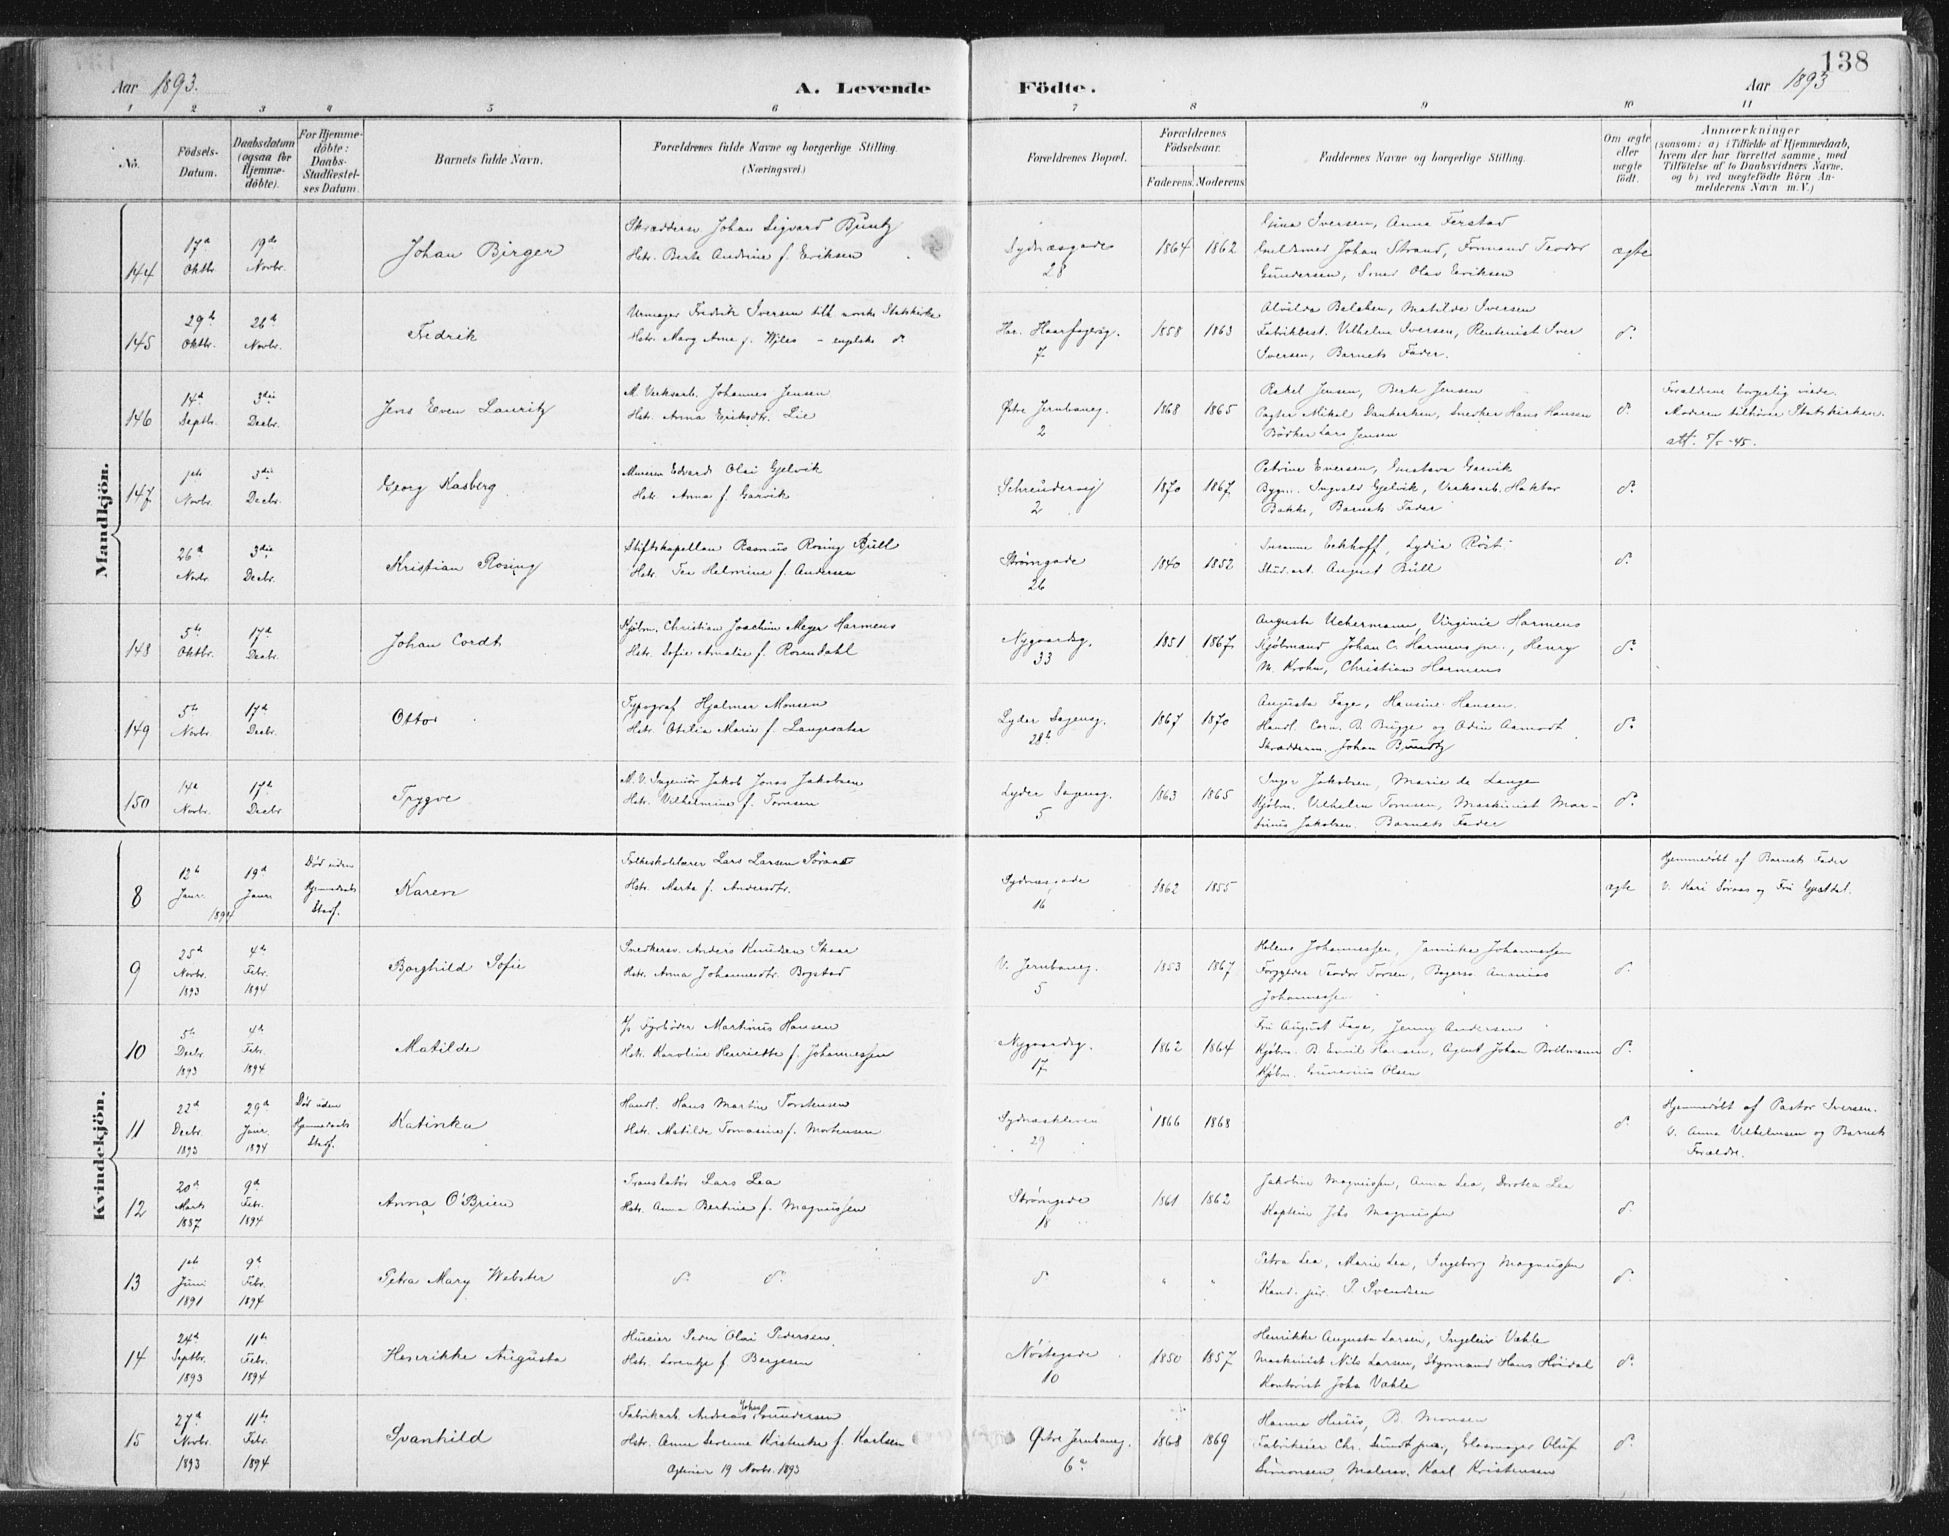 138
Aar 1893.
A. Levende
Födte.
Aar 1893
1 2 3 4 5 6 7 8 9 10 11
No.
Födsels-
Datum.
Daabsdatum
(ogsaa for
Hjemme-
döbte).
For Hjemme-
döbte:
Daabs-
Stadfæstel-
ses Datum.
Barnets fulde Navn.
Forældrenes fulde Navne og borgerlige Stilling.
(Næringsvei.)
Forældrenes Bopæl.
Forældrenes
Födselsaar.
Faderens. Moderens.
Faddernes Navne og borgerlige Stilling.
Om ægte
eller
uægte
födt.
Anmærkninger
(saasom: a) i Tilfælde af Hjemmedaab,
hvem der har forrettet samme, med
Tilföielse af to Daabsvidners Navne,
og b) ved uægtefödte Börn An-
melderens Navn m. V.)
Mandkjön.
144
17d
Oktbr.
19de
Novbr.
Johan Birger
Skræddersv. Johan Sigvard Bjuntz
Hstr. Berte Andrine f. Eriksen
Sydnæsgade
28
1864 1862
Gina Iversen, Anna Ferstad
Guldsmed Johan Strand, Formand Teodor
Gundersen, Smed Olav Eriksen
ægte
145
29d
Oktbr.
26d
Novbr.
Fredrik
Urmager Fredrik Iversen till. norske Statskirke
Hstr. Mary Anne f. Wiles - engelske do
Har. Haarfagresg.
7
1858 1863
Alvilda Matilde Iversen
Fabrikbest. Vilhelm Iversen, Rentenist Iver
Iversen, Barnets Fader.
do
146
14d
Septbr.
3die
Decbr.
Jens Even Lauritz
M. Verksarb. Johannes Jensen
Hstr. Anna Eriksdtr. Lie
Østre Jernbaneg.
2
1868 1865
Rakel Jensen, Berte Jensen
Mikel Dankerken, Snedker Hans Hansen
Bödker Lars Jensen
do
Forældrene borgelig viede.
Moderen tilhörer Statskirken.
att. 5/5-45.
147
1ste
Novbr.
3die
Decbr.
Georg Kasberg
Murerm Edvard Olai Gjelvik
Hstr. Anna f. Garvik
Schreudersvej
2
1870 1867
Petrine Eversen, Gustava Garvik
Bygm. Ingvald Gjelvik, Verksarb. Haktor
Bakke, Barnets Fader
do
26d
Novbr.
3die
Decbr.
Kristian Rosing
Stiftskapellan Rasmus Rosing Bull
Hstr. Tea Helmine f. Andersen
Strömgade
26
1840 1852
Susanne Eckhoff, Lydia Röst
Stud. art. August Bull
do
148
5te
Oktbr.
17d
Decbr.
Johan Cordt
Kjöbm. Christian Joachim Meyer Harmens
Hstr. Sofie Amalie f. Rosendahl
Nygaardsg.
33
1851 1867
Augusta Uckermann, Virginie Harmens
Kjöbmand Johan C. Harmens jnr., Henry
M. Krohn, Christian Harmens
do
149
5te
Novbr.
17d
Decbr.
Otto
Typograf Hjalmar Monsen
Hstr. Otelia Marie f. Langesæter
Lyder Sagensg.
28b
1867 1870
Augusta Fage, Hansine Hansen.
Handl. Corn. B. Brygge og Odin Aamodt
Skrædderm. Johan Bjundtz
do
150
14d
Novbr.
17d
Decbr
Trygve
M. V. Ingeniör Jakob Jonas Jakobsen
Hstr. Vilhelmine f. Tornsen
Lyder Sagensg.
5
1863 1865
Inger Jakobsen, Marie de Lange
Kjöbm. Vilhelm Tornsen, Maskinist Mar-
tinus Jakobsen, Barnets Fader
do
Kvindekjön.
8
12te
Janr.
1894
19d
Janr.
Död uden
Hjemmedaabs
Stadf.
Karen
Folkeskolelærer Lars Larsen Söraas
Hstr. Marta f. Andersdtr.
Sydnæsgade
16
1862 1855
ægte
Hjemmedöbt af Barnets Fader
V. Kari Söraas og Fru Gjestdal.
9
25d
Novbr.
1893
4de
Febr.
1894
Borghild Sofie
Snedkersv. Anders Knudsen Skaar
Hstr. Anna Johannesdtr. Bogstad
V. Jernbaneg.
5
1853 1867
Helene Johannessen, Jannika Johannessen
Forgylder Teodor Torsen, Bagersv. Ananias
Johannessen
do
10
5te
Decbr.
1893
4de
Febr.
1894
Matilde
Fyrböder Martinus Hansen
Hstr. Karoline Henriette f. Johannessen
Nygaardsg.
17
1862 1864
Fru August Fage, Jenny Andersen
Kjöbm. B. Emil Hansen, Agent Johan Boltmann
Kjöbm. Gunerius Olsen
do
11
22d
Decbr.
1893
29d
Janr.
1894
Död uden
Hjemmedaabs
Stadf.
Katinka
Handl. Hans Martin Torstensen
Hstr. Matilde Tomasine f. Mortensen
Sydnæskleven
29
1866 1868
do
Hjemmedöbt af Pastor Iversen.
V. Anna Vilhelmsen og Barnets
Forældre.
12
20d
Marts
1887
9d
Febr.
1894
Anna O'Brien
Translatör Lars Lea
Hstr. Anna Bertine f. Magnussen
Strömgade
18
1861 1862
Jakobine Magnussen, Anna Lea, Dorotea Lea
Kaptein Johs Magnussen
do
13
1ste
Juni
1891
9d
Febr.
1894
Petra Mary Webster
do do
do
" "
Petra Lea, Marie Lea, Ingeborg Magnussen
Kand. jur. P. Svendsen
do
14
24d
Septbr.
1893
11te
Febr.
1894
Henrikke Augusta
Huseier Peder Olai Pedersen
Hstr. Lorentze f. Bergesen
Nöstegade
10
1850 1857
Henrikke Augusta Larsen, Ingeleiv Vehle
Maskinist Nils Larsen, Styrmand Hans Höidal
Kontorist John Vehle
do
15
27d
Novbr.
1893
11te
Febr.
1894
Svanhild
Johan
Fabrikarb. Andreas Gundersen
Hstr. Anne Severine Kristenke f. Karlsen
19 Novbr. 1893
Østre Jernbaneg.
6a
1868 1869
Hanna Huus, B. Monsen
Fabrikeier Chr. Sundt jnr., Glasmager Oluf
Simonsen, Malersv. Karl Kristensen
do